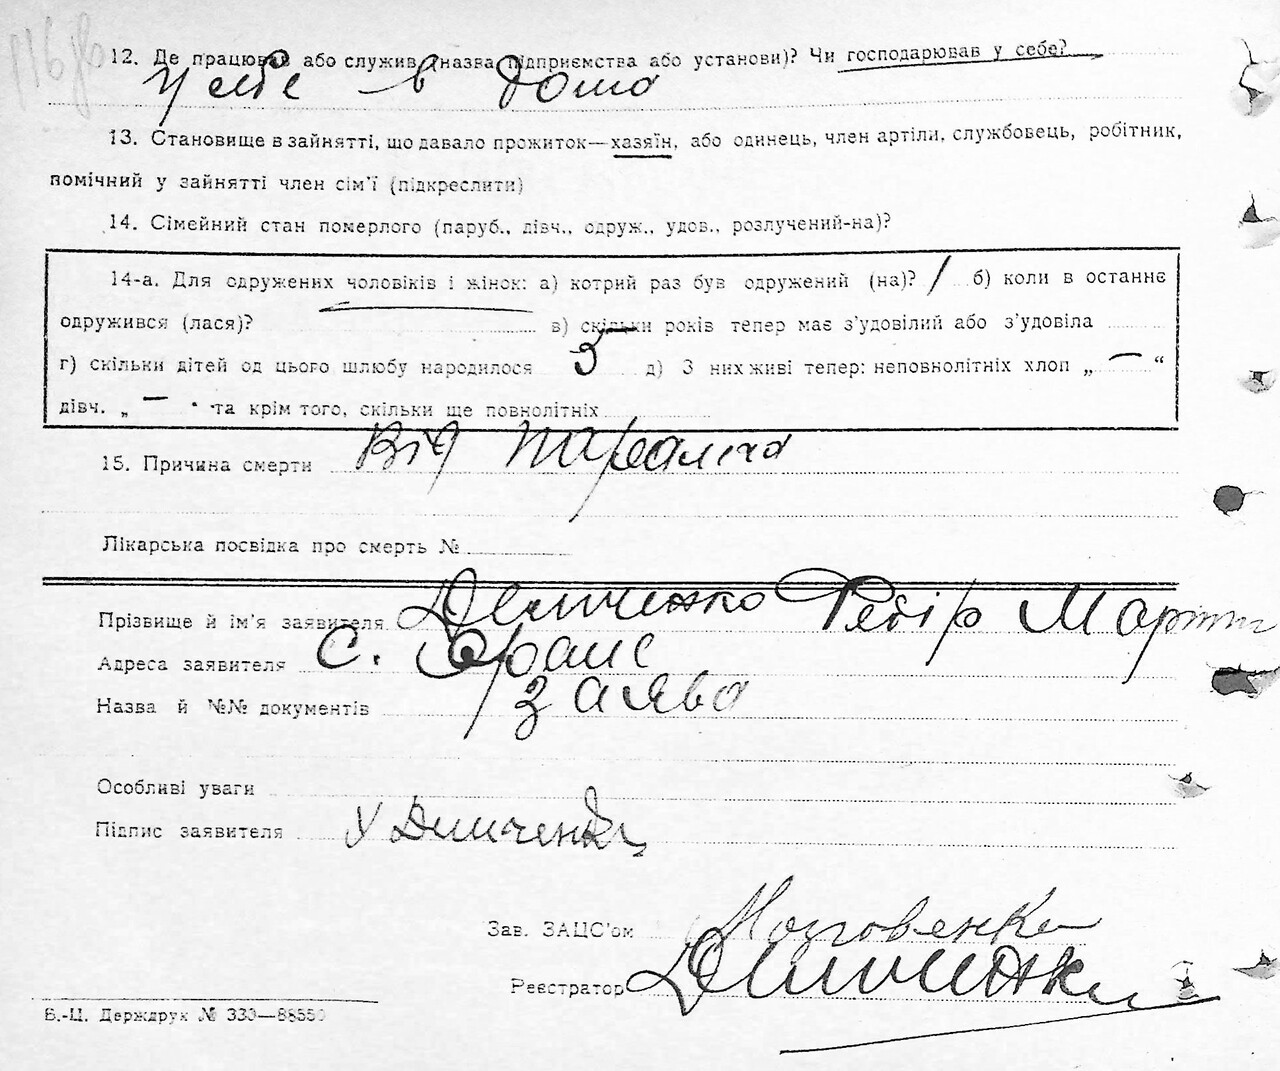 116
12. Де працював або служив (назва підприємства або установи)? Чи господарював у себе?
у себе в дома
13. Становище в зайнятті, що давало прожиток—хазяїн, або одинець, член артіли, службовець, робітник,
помічний у зайнятті член сім'ї (підкреслити)
14. Сімейний стан померлого (паруб., дівч., одруж., удов., розлучений-на)?
14-а. Для одружених чоловіків і жінок: а) котрий раз був одружений (на)? 1 б) коли в останнє
одружився (лася)? в) скільки років тепер має з'удовілий або з'удовіла
г) скільки дітей од цього шлюбу народилося 5 д) З них живі тепер: неповнолітніх хлоп „ — “
дівч. „ — " та крім того, скільки ще повнолітніх
15. Причина смерти Від параліча
Лікарська посвідка про смерть №
Прізвище й ім'я заявителя Демченко Федір Мартин
Адреса заявителя С.
Назва й №№ документів заява
Особливі уваги
Підпис заявителя Х Демченко
Зав. ЗАЦС'ом Мозговенко
Реєстратор Демченко
В.-Ц. Держдрук № 330—88550